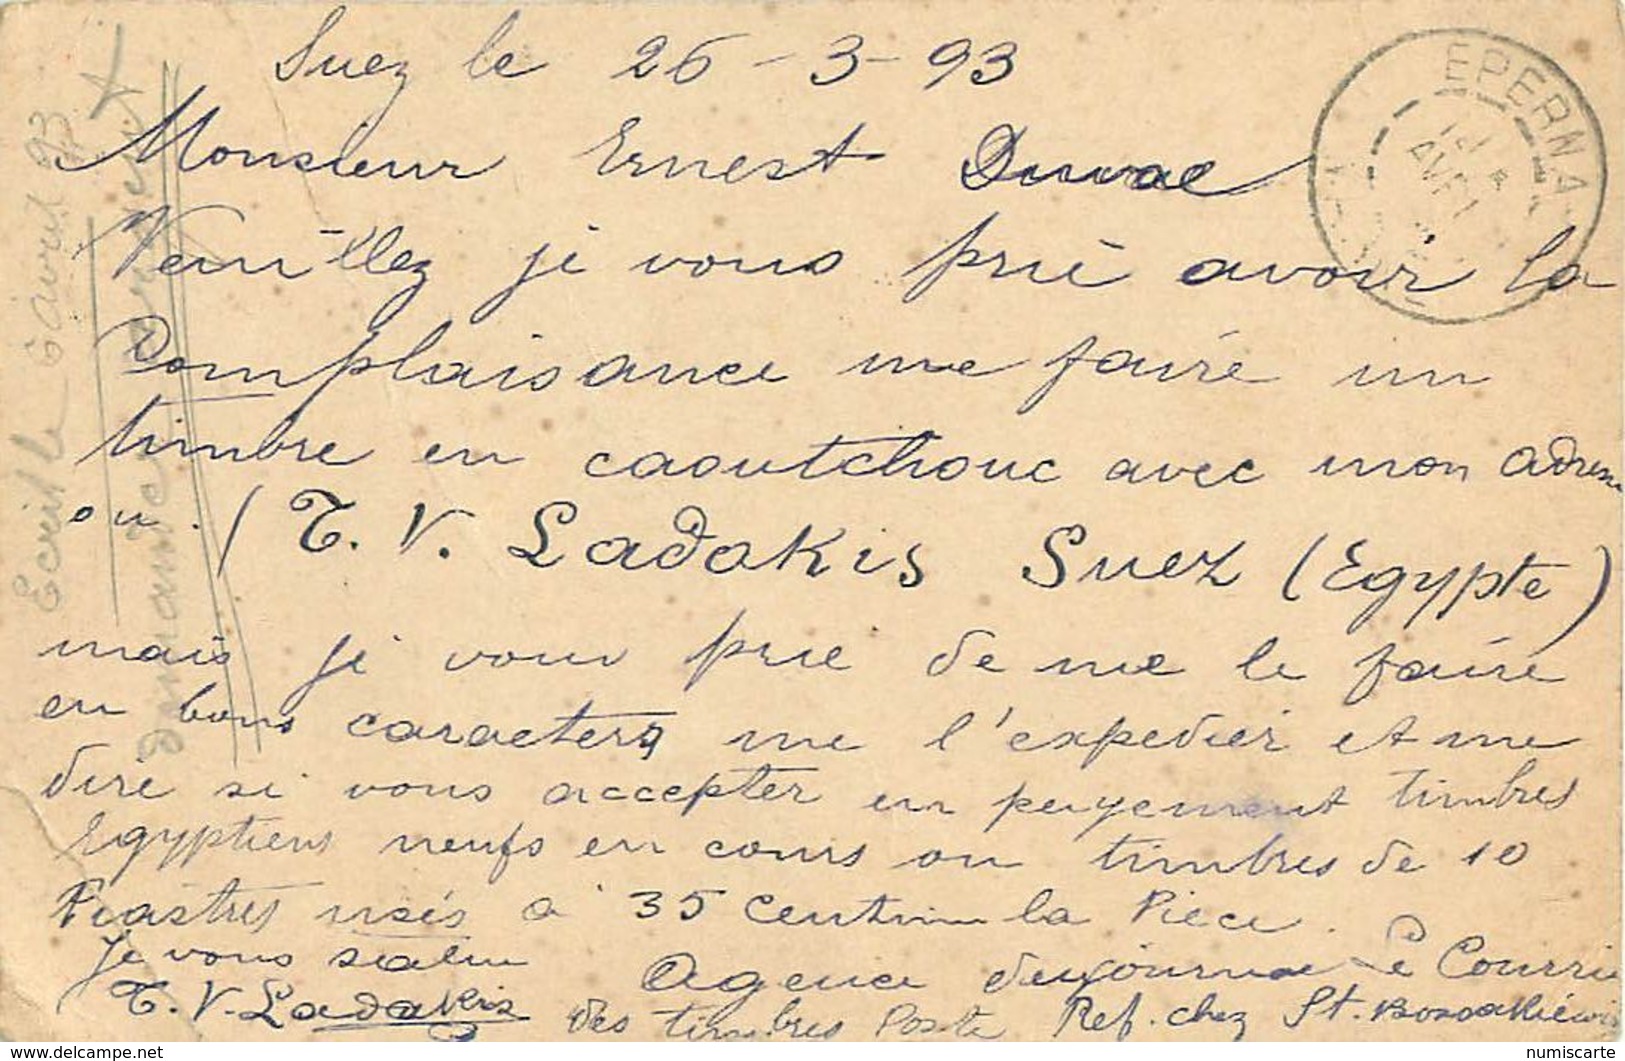 Suez le 26-3-93
Monsieur Ernest Duval
Veuillez je vous prie avoir la
Complaisance me faire un
timbre en caoutchouc avec mon adresse
T. V. Ladakis Suez (Egypte)
mais je vous prie de me le faire
en bons caracters me l'expedier et me
dire si vous accepter en payement timbres
Egyptiens neufs en cours ou timbres de 10
Piastres usés à 35 Centim la Pièce.
Je vous salue
T. V. Ladakis
Agence du journal Le Courrie
des timbres Poste Ref. chez St.
Ecrit le 6 avril 93
demander
EPERNAY
AVRIL
numiscarte